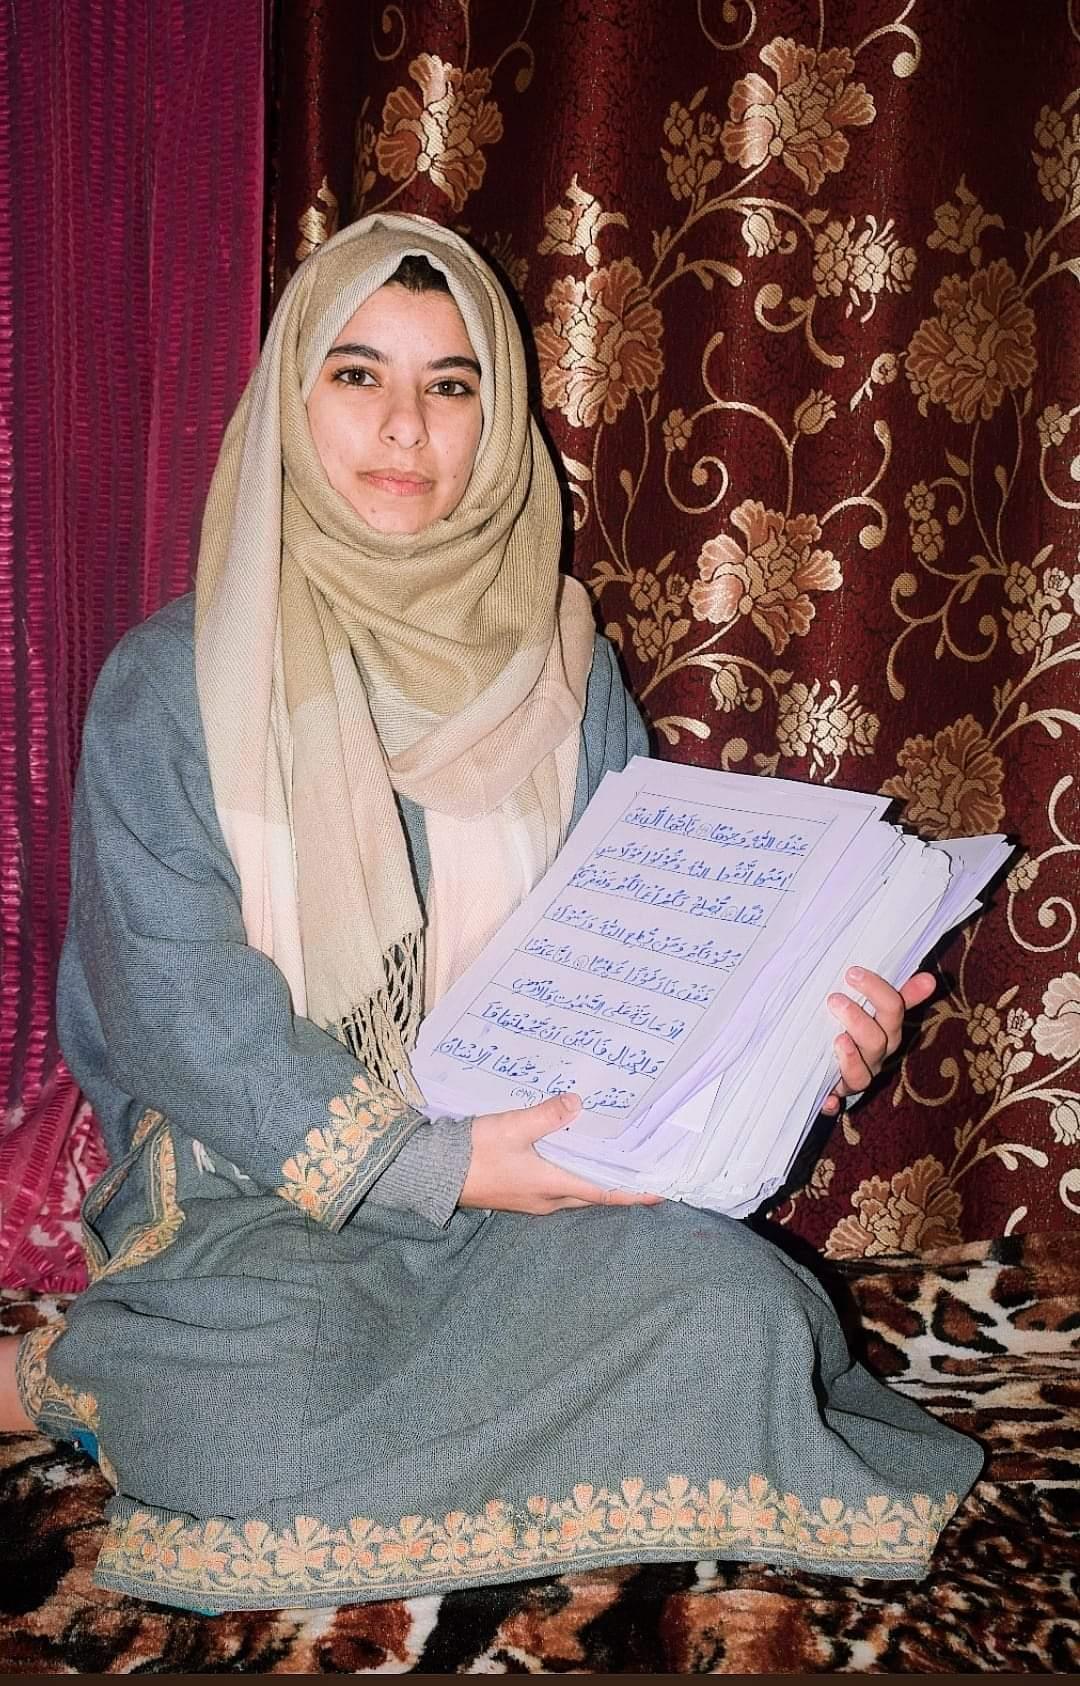 عِنْدَ اللّٰهِ وَجِيْهًا ۞ يٰۤاَيُّهَا الَّذِيْنَ
اٰمَنُوا اتَّقُوا اللّٰهَ وَقُوْلُوْا قَوْلًا سَ
دِيْدًا ۞ يُّصْلِحْ لَكُمْ اَعْمَالَكُمْ وَيَغْفِرْ لَكُمْ
ذُنُوْبَكُمْ وَمَنْ يُّطِعِ اللّٰهَ وَرَسُوْلَهٗ
فَقَدْ فَازَ فَوْزًا عَظِيْمًا ۞ اِنَّا عَرَضْنَا
الْاَمَانَةَ عَلَى السَّمٰوٰتِ وَالْاَرْضِ
وَالْجِبَالِ فَاَبَيْنَ اَنْ يَّحْمِلْنَهَا وَاَ
شْفَقْنَ مِنْهَا وَحَمَلَهَا الْاِنْسَانُ